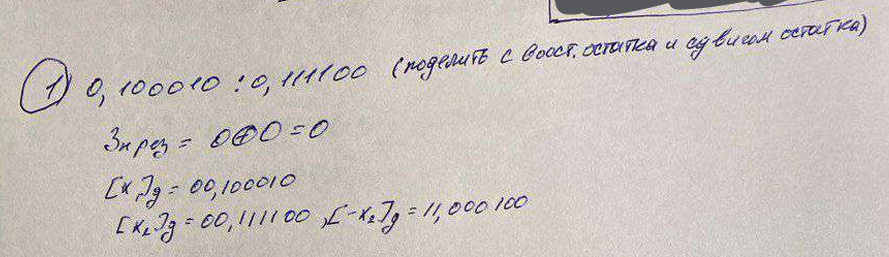 1) 0,100010 : 0,111100 (поделить с восст. остатка и сдвигом остатка)
Зн рез = 0⊕0 = 0
[x₁]д = 00,100010
[x₂]д = 00,111100, [-x₂]д = 11,000100